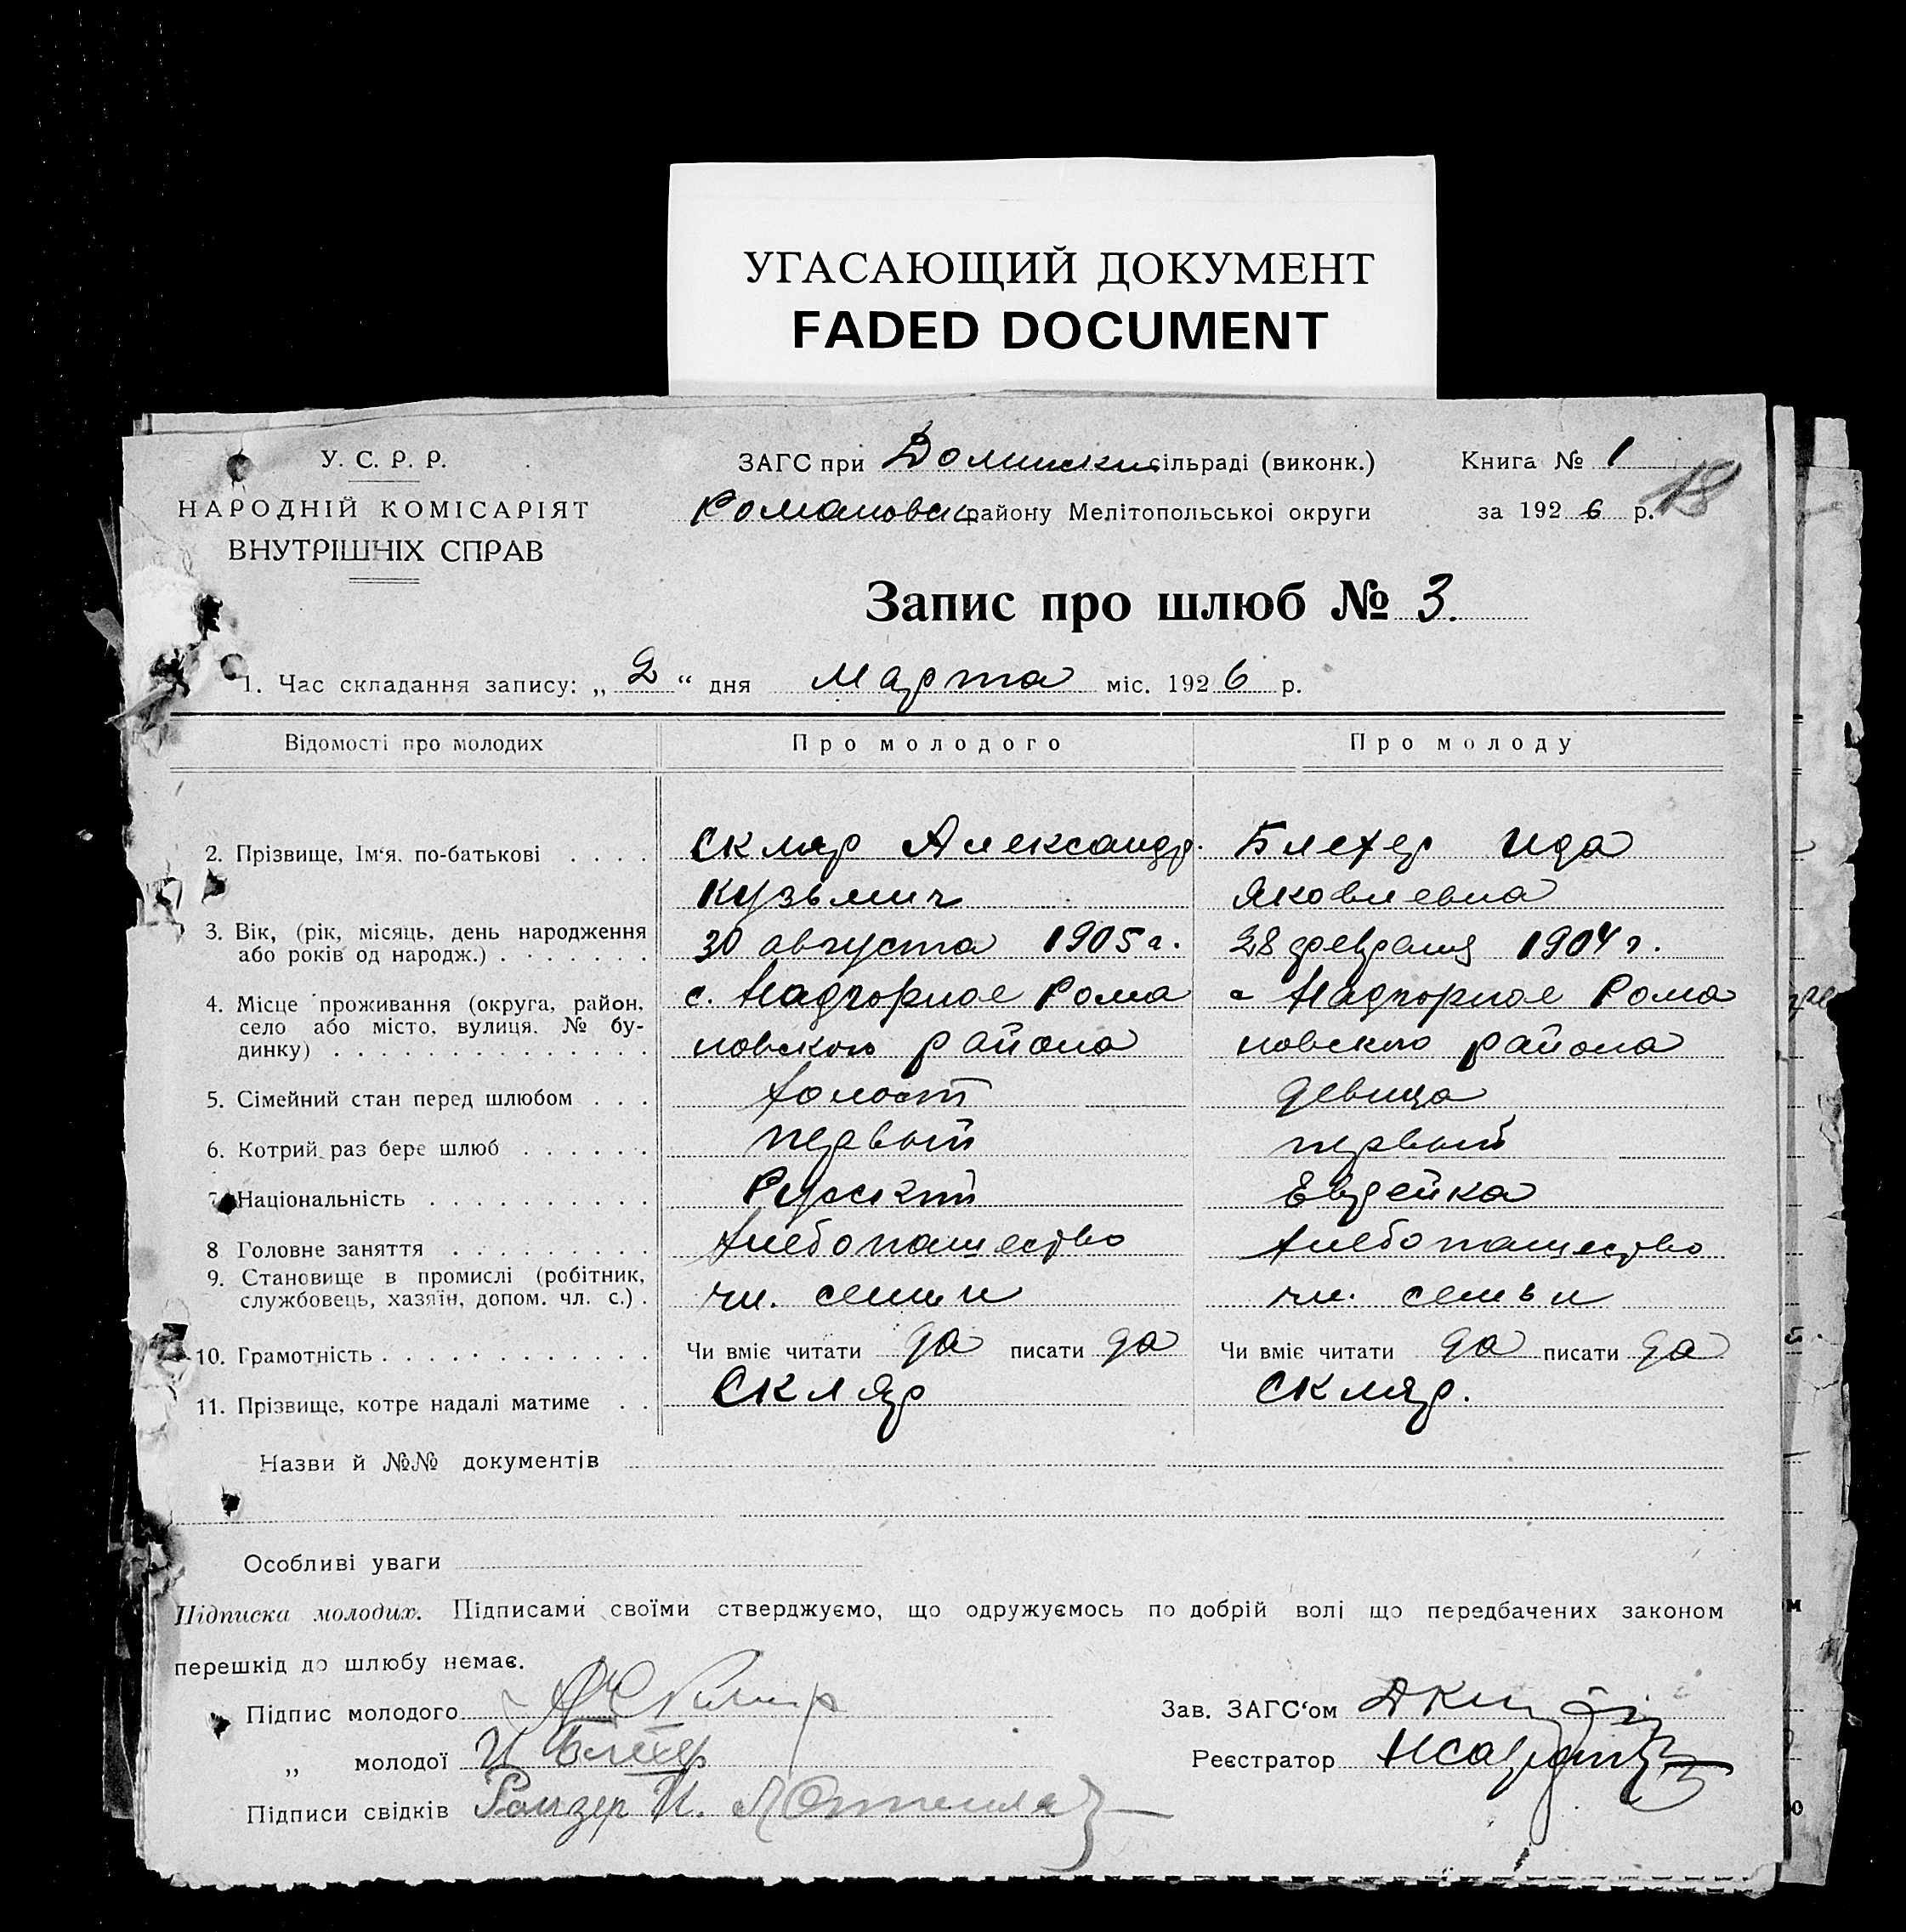 УГАСАЮЩИЙ ДОКУМЕНТ
FADED DOCUMENT
У. С. Р. Р.
НАРОДНІЙ КОМІСАРІЯТ
ВНУТРІШНІХ СПРАВ
ЗАГС при Долинский сільраді (виконк.)
Романовск району Мелітопольської округи
Книга № 1
за 1926 р. 18
Запис про шлюб № 3.
1. Час складання запису: „2“ дня марта міс. 1926 р.
Відомості про молодих Про молодого Про молоду
2. Прізвище, Ім‘я, по-батькові . . . . Скляр Александр. Блехер Ида
Кузьмич Яковлевна
3. Вік, (рік, місяць, день народження або років од народж.) . . . . . . . 30 августа 1905 г. 28 февраля 1904 г.
4. Місце проживання (округа, район, село або місто, вулиця, № будинку) . . . . . . . . . . . . . . с. Надгорное Рома с Надгорное Рома
новского района новского района
5. Сімейний стан перед шлюбом . . . холост девица
6. Котрий раз бере шлюб . . . . . . первый первый
7. Національність . . . . . . . . . . Русский Еврейка
8 Головне заняття . . . . . . . . . хлебопашество хлебопашество
9. Становище в промислі (робітник, службовець, хазяїн, допом. чл. с.) . чл. семьи чл. семьи
10. Грамотність . . . . . . . . . . . . Чи вміє читати да писати да Чи вміє читати да писати да
11. Прізвище, котре надалі матиме . . Скляр Скляр.
Назви й №№ документів
Особливі уваги
Підписка молодих. Підписами своїми стверджуємо, що одружуємось по добрій волі що передбачених законом
перешкід до шлюбу немає.
Підпис молодого А Скляр
Зав. ЗАГС‘ом
„ молодої И Блехер
Реєстратор
Підписи свідків И.